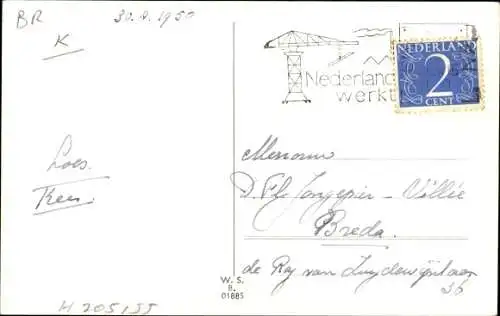 BR
30.8.1950
K
Nederland
werkt
NEDERLAND
2
CENT
Loes.
Kees.
Mevrouw
D. Fl. Jongepier - Vallée
Breda.
de Roy van Zuydewijnlaan
36
W. S.
B.
01885
H 205155